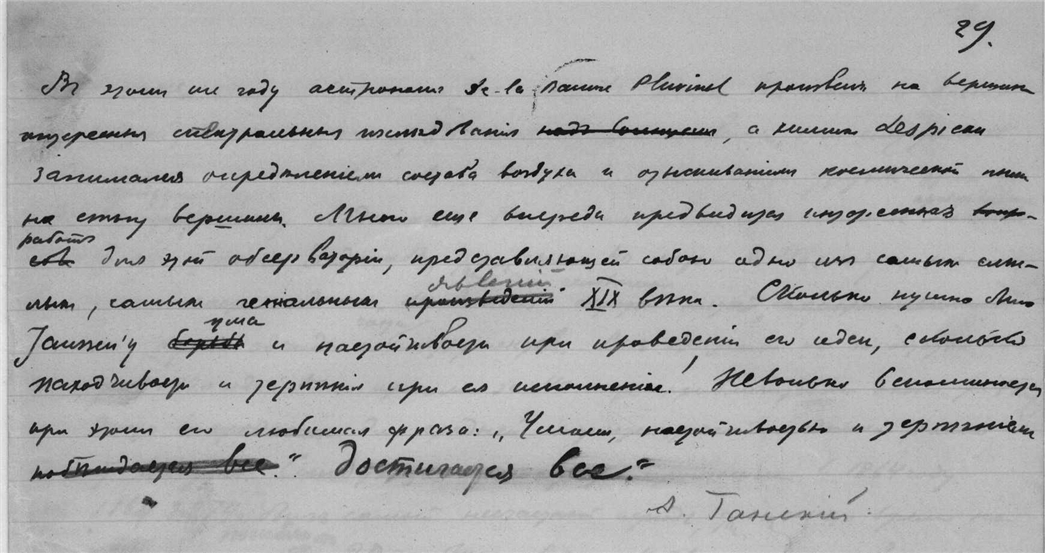 29.
Въ этом же году астрономъ De-la-Baume Pluvinel произвелъ на вершинѣ
интересныя спектральныя изслѣдованія надъ солнцемъ, а химикъ Lespieau
занимался опредѣленіемъ состава воздуха и отыскиваніемъ космической пыли
на снѣгу вершины. Много еще впереди предвидится интересныхъ вопро-
работъ
совъ для этой обсерваторіи, представляющей собою одно изъ самыхъ смѣ-
явленій
лыхъ, самыхъ геніальныхъ произведеній XIX вѣка. Сколько нужно было
ума
Janssen'у и настойчивости при проведеніи его идеи, сколько
находчивости и терпѣнія при ея исполненіи! Невольно вспоминается
при этомъ его любимая фраза: „Умомъ, настойчивостью и терпѣніем
побѣждается все." достигается все."
А. Ганскій